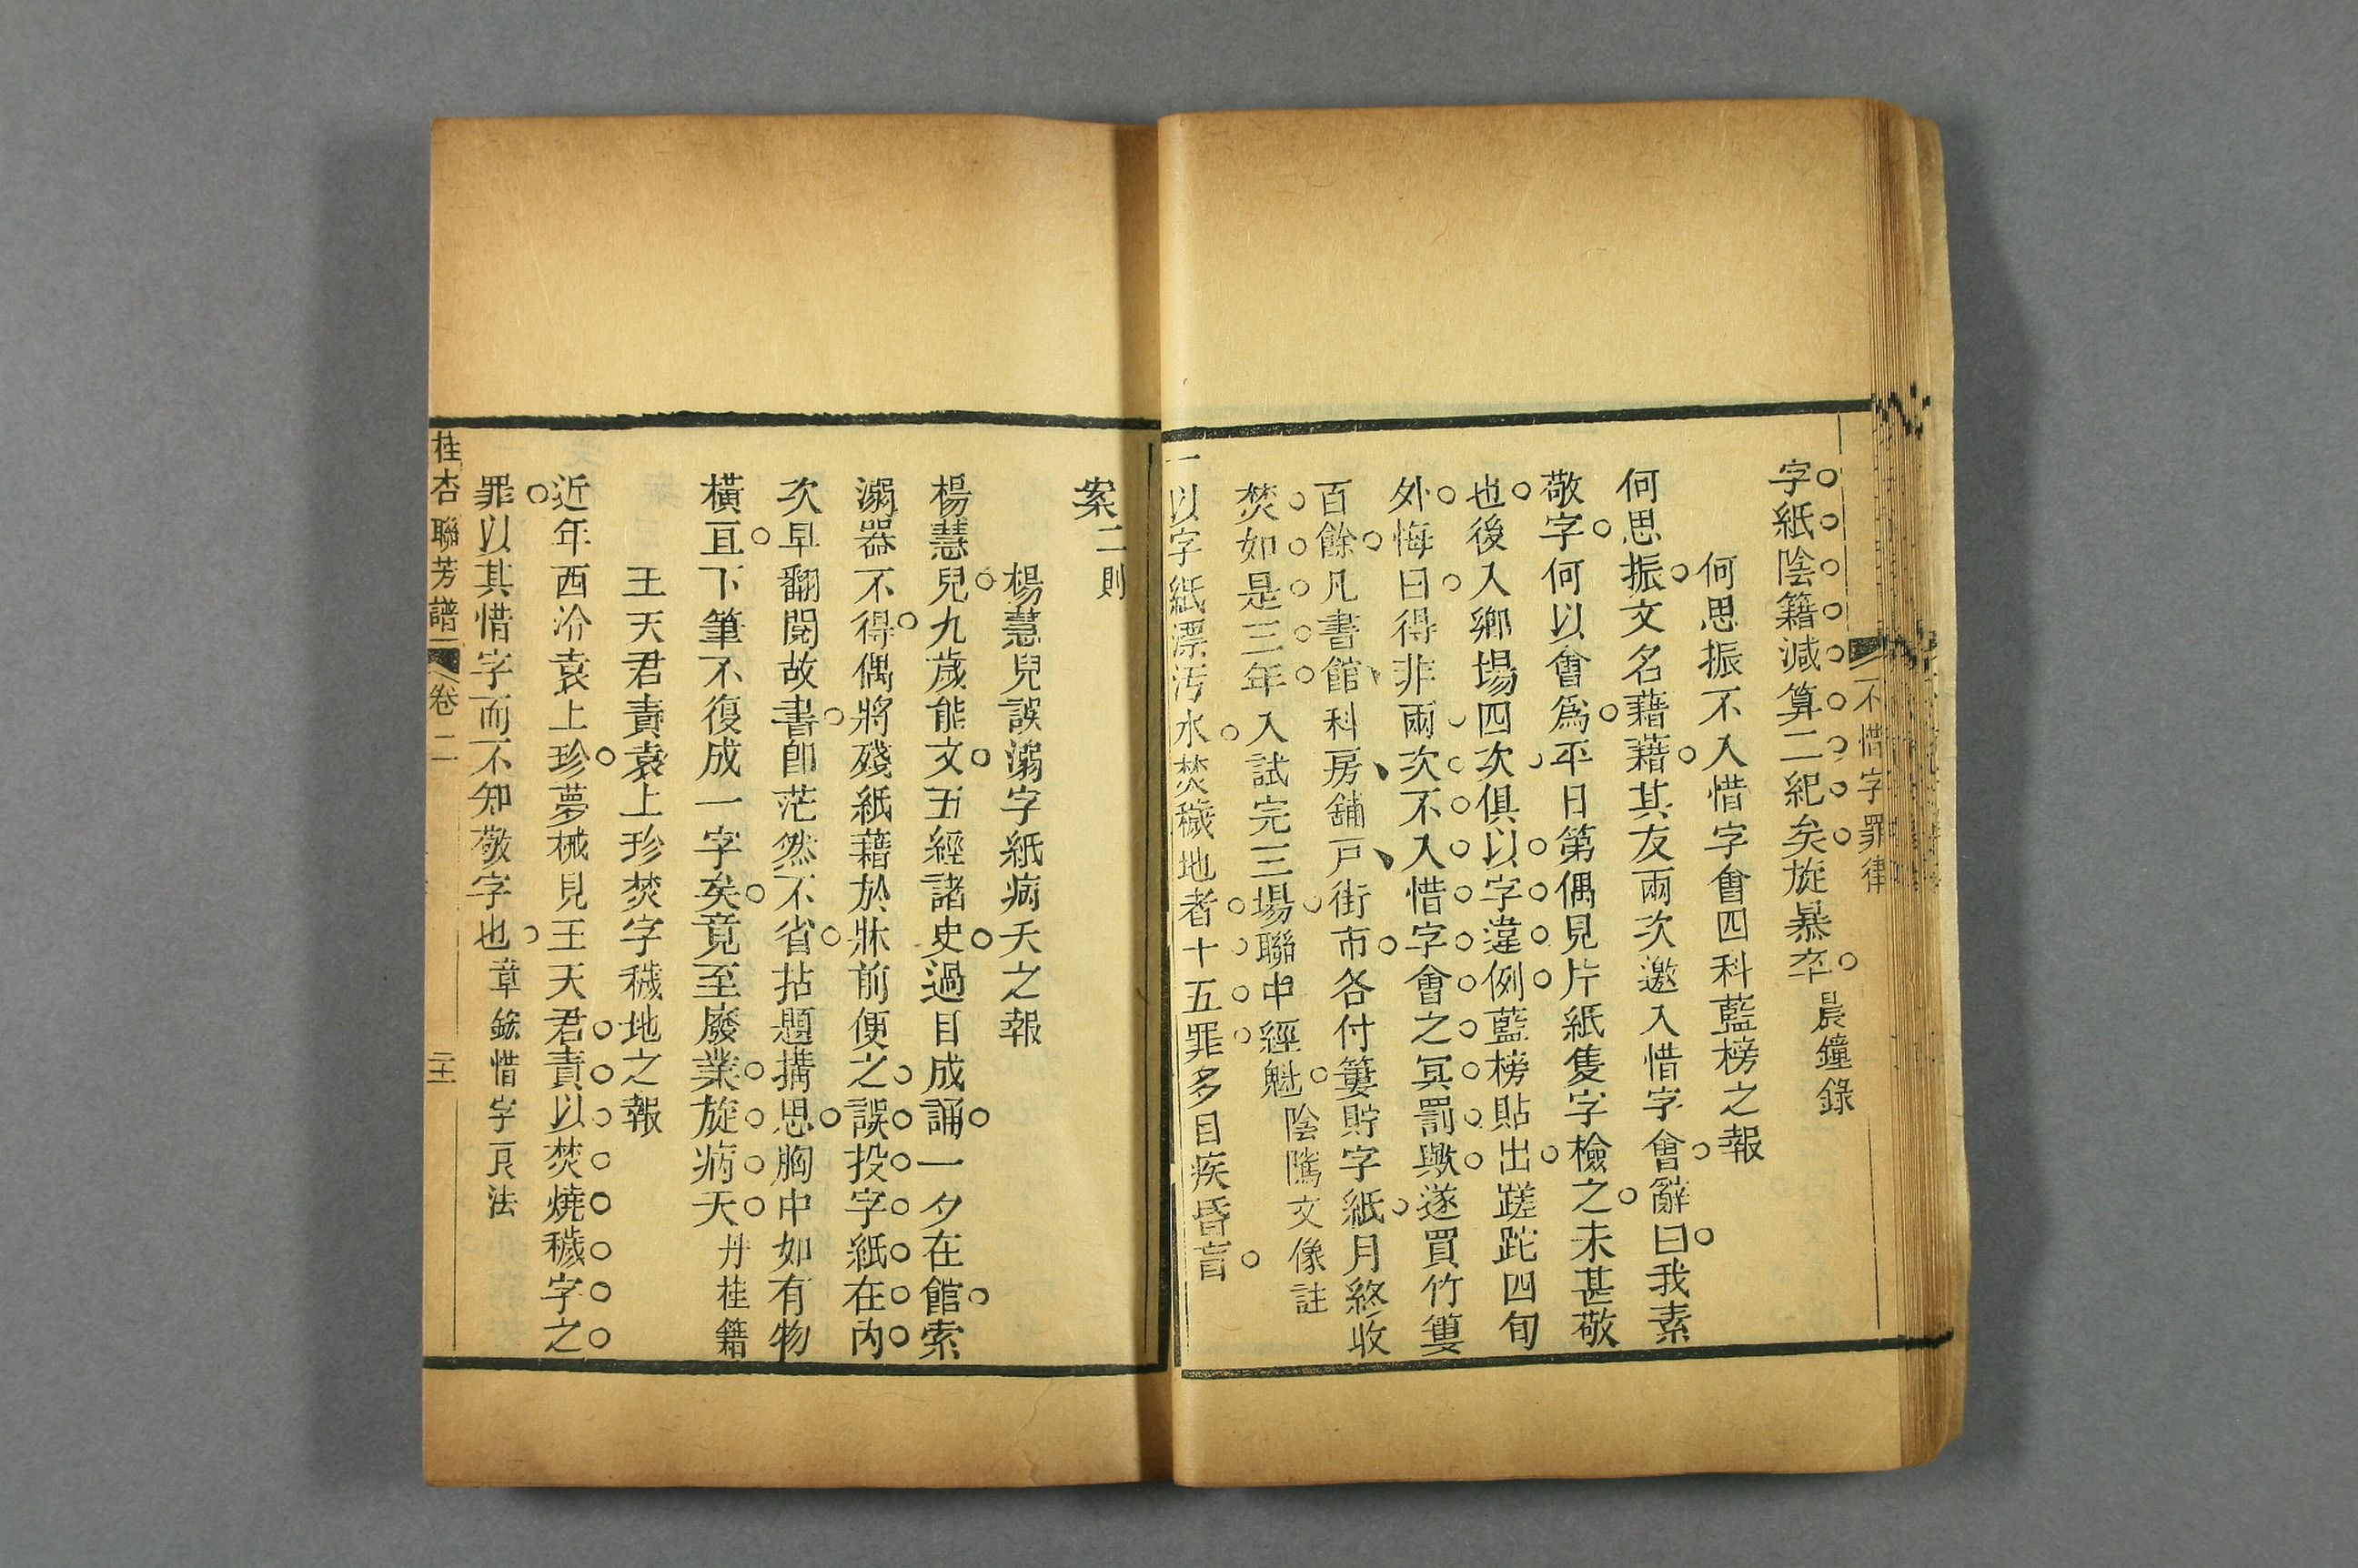 不惜字罪律
字紙陰籍減算二紀矣旋暴卒晨鐘錄
何思振不入惜字會四科藍榜之報
何思振文名藉藉其友兩次邀入惜字會辭曰我素
敬字何以會爲平日第偶見片紙隻字檢之未甚敬
也後入鄉場四次俱以字違例藍榜貼出蹉跎四旬
外悔曰得非兩次不入惜字會之冥罰歟遂買竹簍
百餘凡書館科房舖戸街市各付簍貯字紙月終收
焚如是三年入試完三場聯中經魁陰隲文像註
一以字紙漂汚水焚穢地者十五罪多目疾昏盲
案二則
楊慧兒誤溺字紙病夭之報
楊慧兒九歲能文五經諸史過目成誦一夕在館索
溺器不得偶將殘紙藉於牀前便之誤投字紙在內
次早翻閱故書卽茫然不省拈題搆思胸中如有物
橫亘下筆不復成一字矣竟至廢業旋病夭丹桂籍
王天君責袁上珍焚字穢地之報
近年西泠袁上珍夢械見王天君責以焚燒穢字之
罪以其惜字而不知敬字也章鋐惜字良法
桂杏聯芳譜 卷二